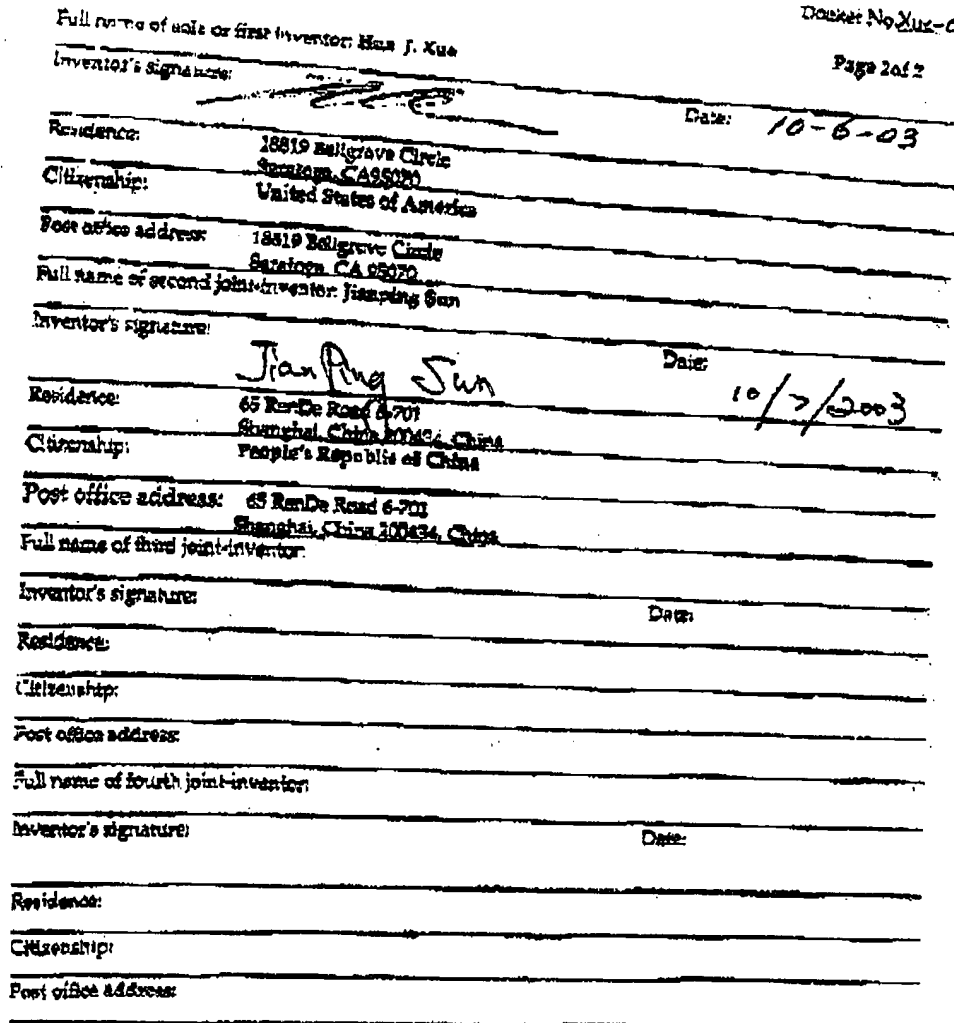 Docket No. Xue-
Full name of sole or first inventor: J. Xue
Page 2 of 2
Inventor's signature:
Date: 10-6-03
Residence: 18819 Bellgrove Circle
Saratoga, CA 95070
Citizenship: United States of America
Post office address: 18819 Bellgrove Circle
Saratoga, CA 95070
Full name of second joint-inventor: Jianping Sun
Inventor's signature:
Jian Ping Sun
Date:
10/7/2003
Residence: 65 RenDe Road 6-701
Shanghai, China 200434, China
Citizenship: People's Republic of China
Post office address: 65 RenDe Road 6-701
Shanghai, China 200434, China
Full name of third joint-inventor:
Inventor's signature:
Date:
Residence:
Citizenship:
Post office address:
Full name of fourth joint-inventor:
Inventor's signature:
Date:
Residence:
Citizenship:
Post office address: